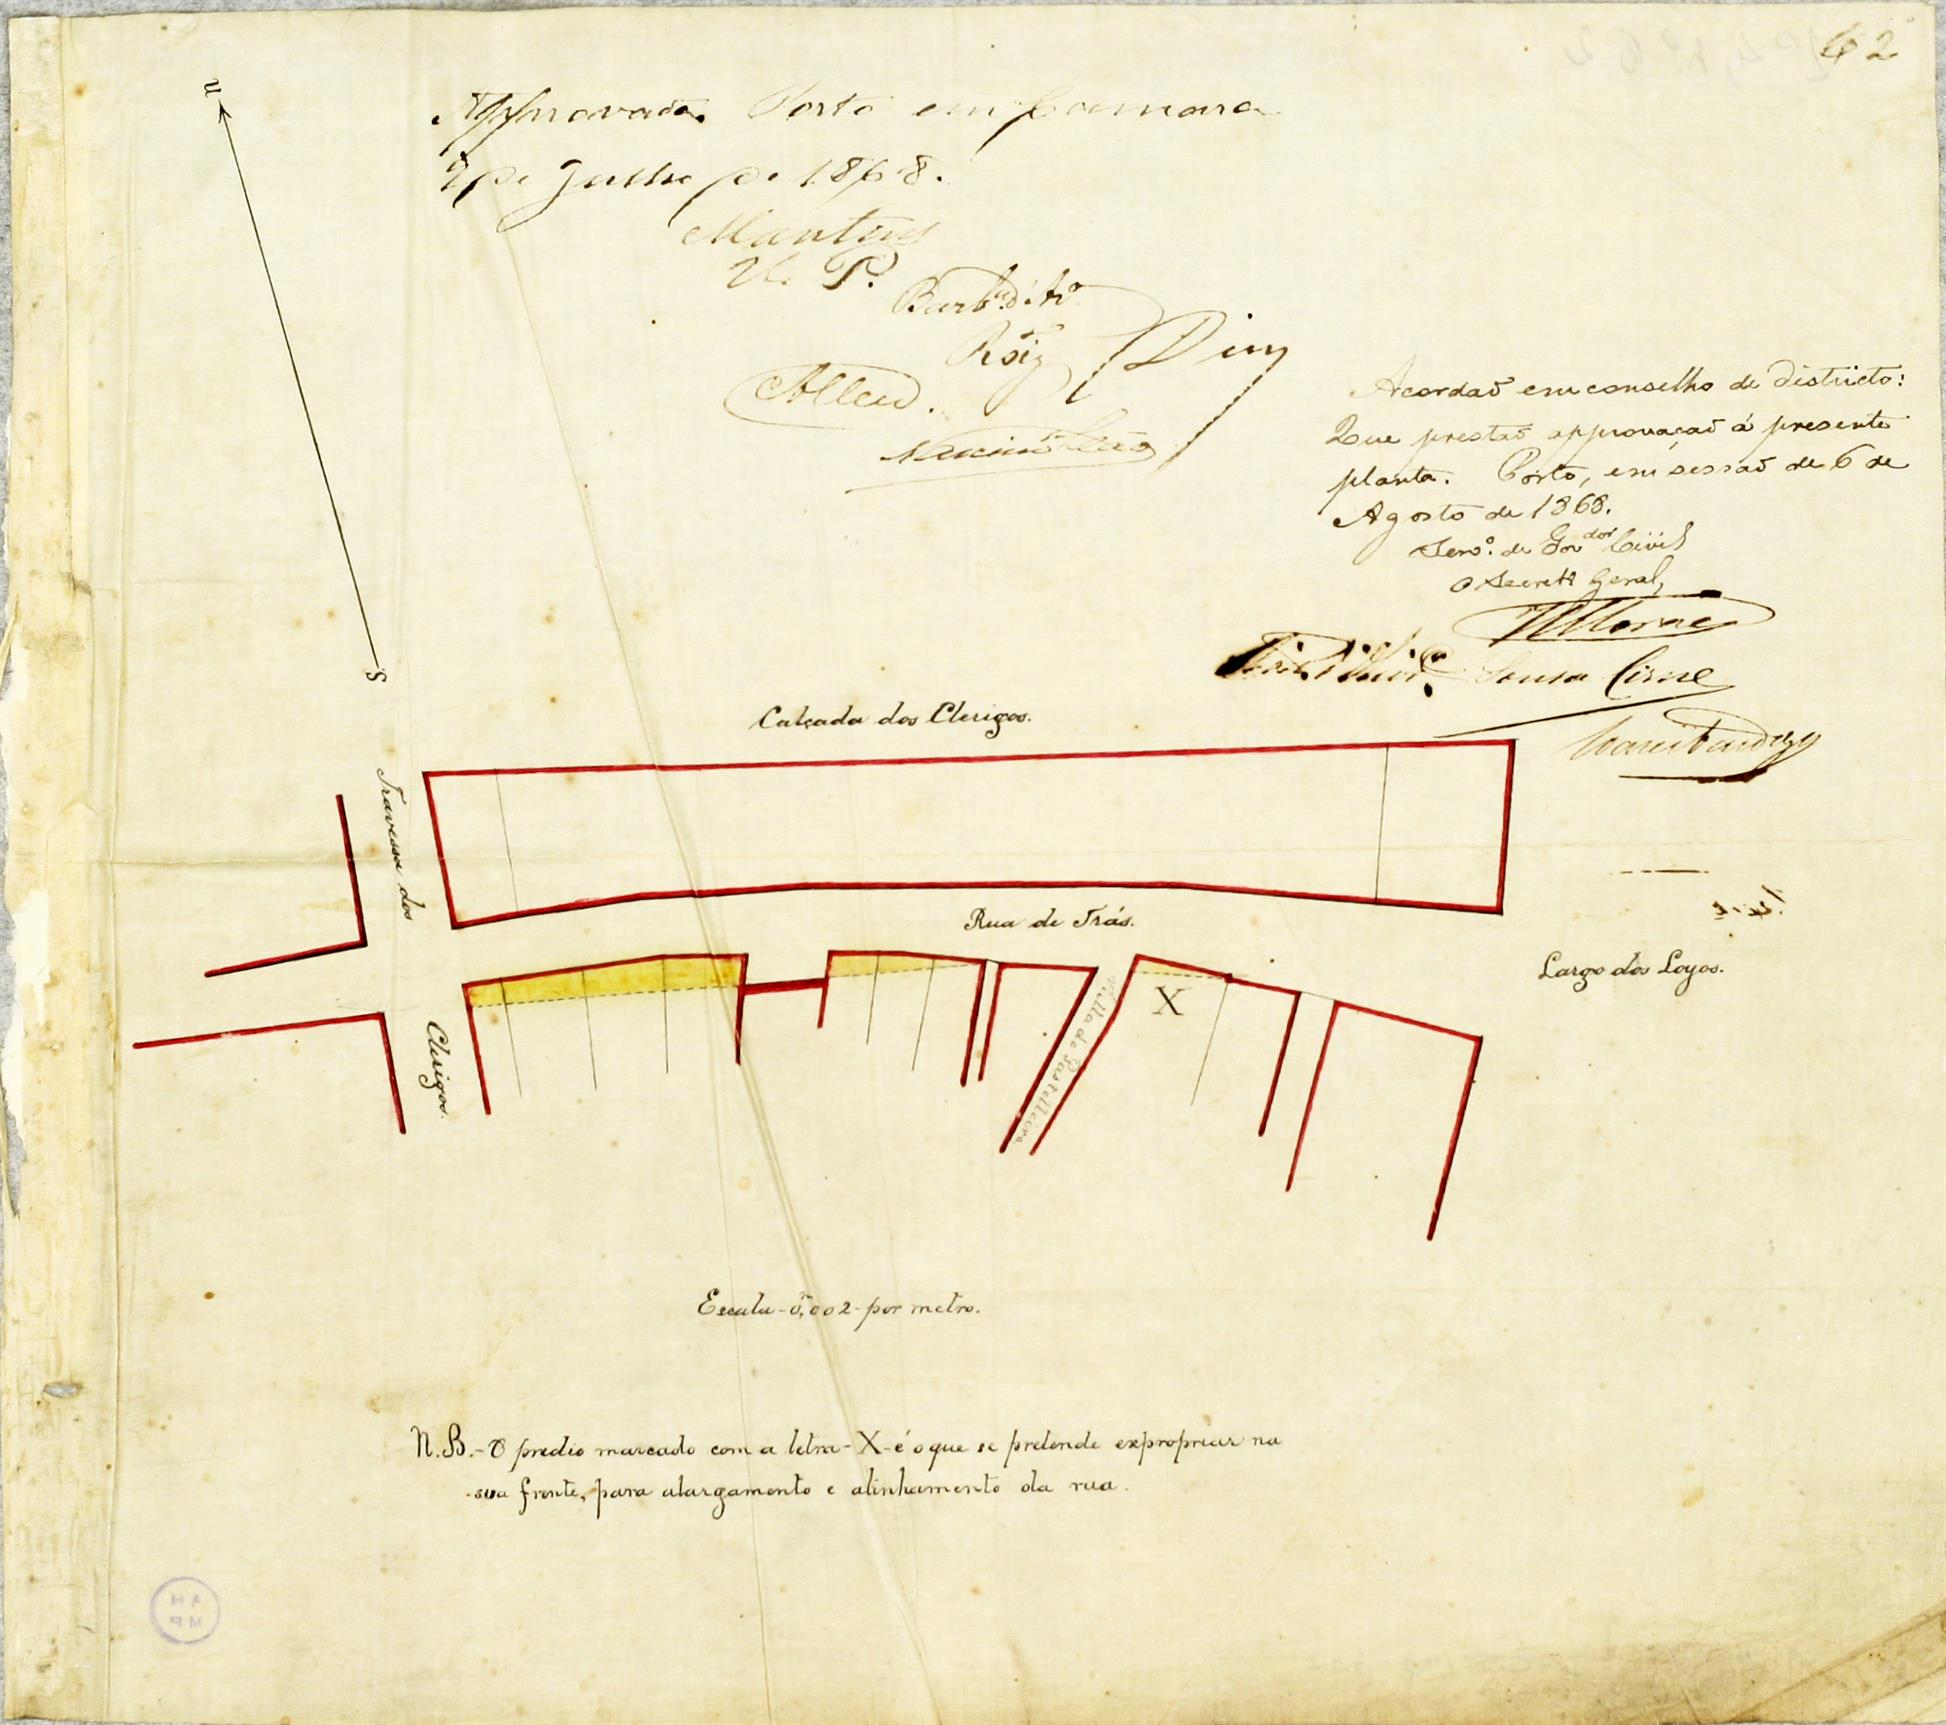 62
n
Approvada. Porto em Camara
de Julho de 1868.
V. P.
Roiz
Allen.
Acordaõ em conselho de districto:
Que prestaõ approvaçaõ á presente
planta. Porto, em sessaõ de 6 de
Agosto de 1868.
Serv.º de Gov.dor Civil
O Secret.º Geral,
Sousa Cirne
s
Calçada dos Clerigos.
Travessa dos
Clerigos.
Rua de Trás.
Largo dos Loyos.
X
Viella do Pastelleiro
Escala - 0,m002 - por metro.
N. B. - O predio marcado com a letra - X - é o que se pretende expropriar na
sua frente, para alargamento e alinhamento da rua.
AH
MP